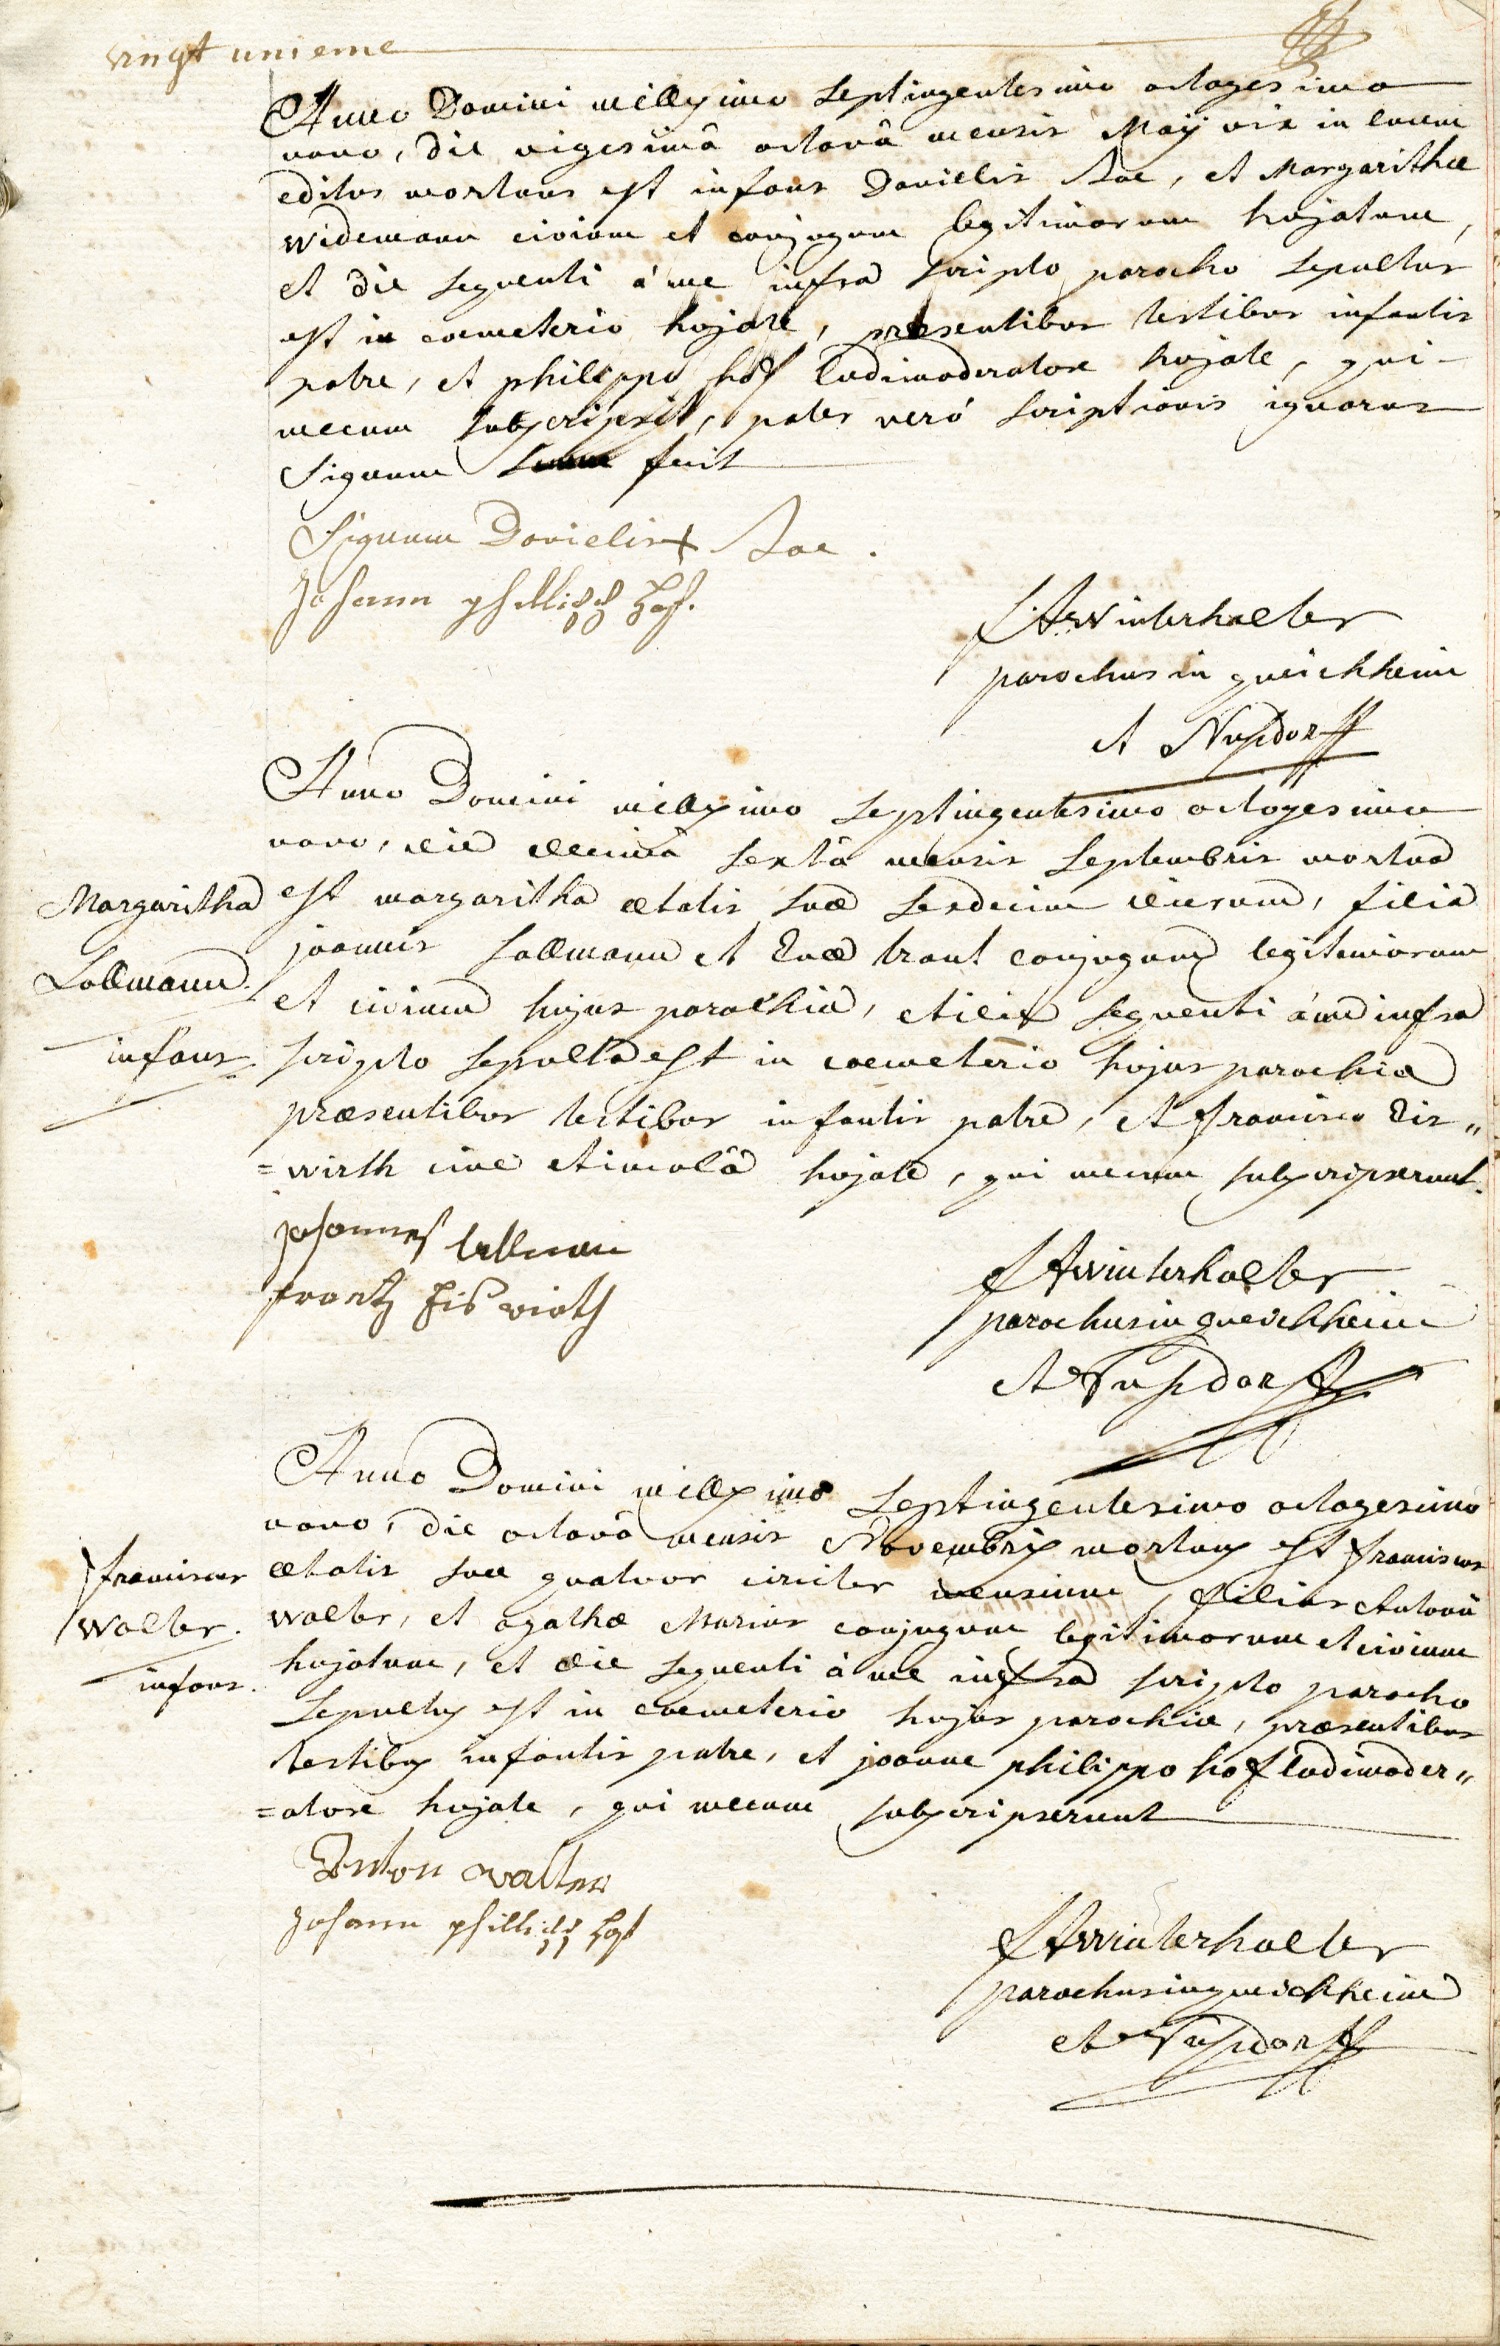 vingt unieme
Anno Domini millesimo septingentesimo octogesimo
nono, die vigesimâ octavâ mensis Maij vix in lucem
editus mortuus est infans Danielis Roe, et Margarithæ
Widemann civium et conjugum legitimorum hujatum,
et die sequenti á me infra scripto parocho sepultus
est in coemeterio hujate, præsentibus testibus infantis
patre, et philippo hof ludimoderatore hujate, qui
mecum subscripsit, pater veró scriptionis ignarus
signum fecit
Signum Danielis + Roe.
Johann philipp Hof.
FAWinterhalter
parochus in queichheim
et Nusdorff
Anno Domini millesimo septingentesimo octogesimo
nono, die decimâ sextâ mensis septembris mortua
Margaritha
est margaritha ætatis suæ sexdecim dierum, filia
Lallmann
joannis Lallmann et Evæ traut conjugum legitimorum
et civium hujus parochiæ, et die sequenti á me infra
infans
scripto sepulta est in coemeterio hujus parochiæ
præsentibus testibus infantis patre, et francisco Eis„
=wirth cive et incolâ hujate, qui mecum subscripserunt.
Johannes lallman
frantz Eiswirth
FAWinterhalter
parochus in queichheim
et Nusdorff
Anno Domini millesimo septingentesimo octogesimo
nono, die octavâ mensis Novembris mortuus est franciscus
franciscus
ætatis suæ quatuor circiter mensium, filius Antonii
Walter.
Walter, et agathæ Marius conjugum legitimorum et civium
infans.
hujatum, et die sequenti á me infra scripto parocho
sepultus est in coemeterio hujus parochiæ, præsentibus
testibus infantis patre, et joanne philippo hof ludimoder„
=atore hujate, qui mecum subscripserunt
Anton Walter
Johann philipp Hof
FAWinterhalter
parochus in queichheim
et Nusdorff